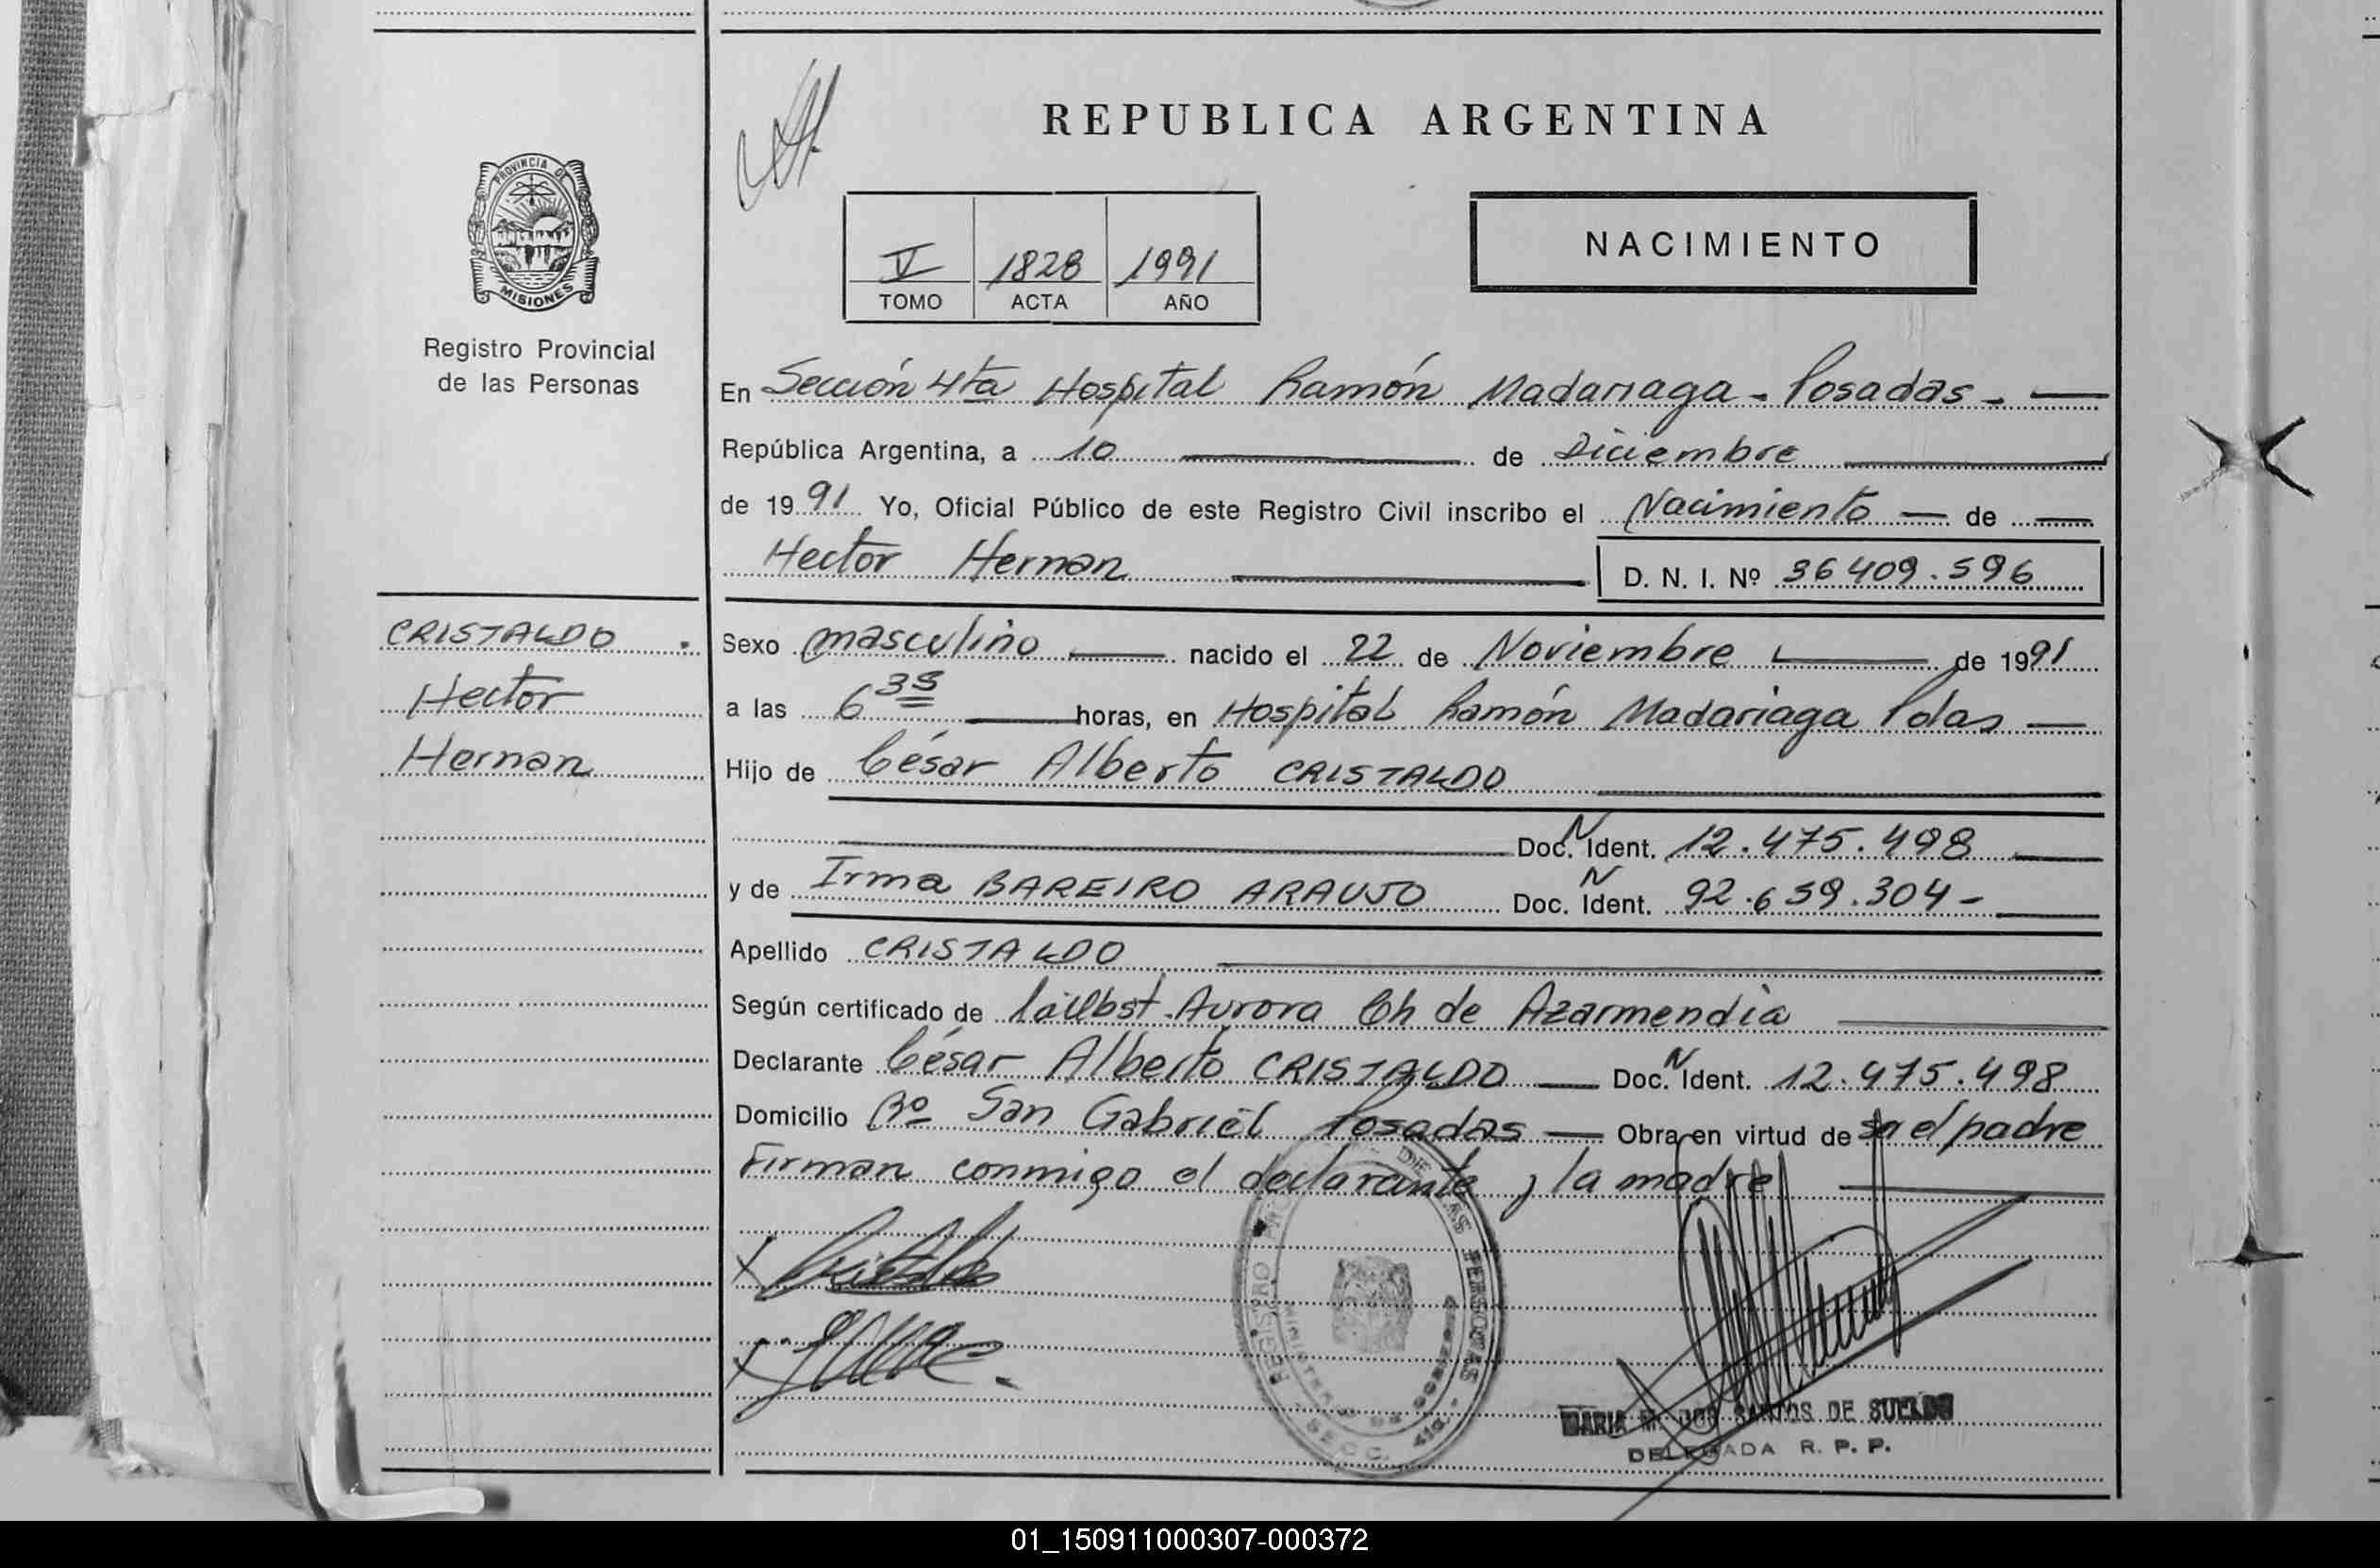 REPUBLICA ARGENTINA
PROVINCIA DE
MISIONES
Registro Provincial
de las Personas
V 1828 1991
TOMO ACTA AÑO
NACIMIENTO
En Sección 4ta Hospital Ramón Madariaga - Posadas -
República Argentina, a 10 de Diciembre
de 1991 Yo, Oficial Público de este Registro Civil inscribo el Nacimiento de
Hector Hernan D. N. I. Nº 36409.596
CRISTALDO
Hector
Hernan
Sexo masculino nacido el 22 de Noviembre de 1991
a las 6 35 horas, en Hospital Ramón Madariaga Pdas
Hijo de César Alberto CRISTALDO
Doc. N Ident. 12.475.498
y de Irma BAREIRO ARAUJO Doc. N Ident. 92.639.304-
Apellido CRISTALDO
Según certificado de Aurora Ch de Azarmendia
Declarante César Alberto CRISTALDO Doc. N Ident. 12.475.498
Domicilio Bº San Gabriel Posadas Obra en virtud de el padre
Firman conmigo el declarante y la madre
REGISTRO DE LAS PERSONAS
MINISTERIO DE GOBIERNO
SECC. 4ta.
MARIA M. DOS SANTOS DE SUELDO
DELEGADA R. P. P.
01_150911000307-000372